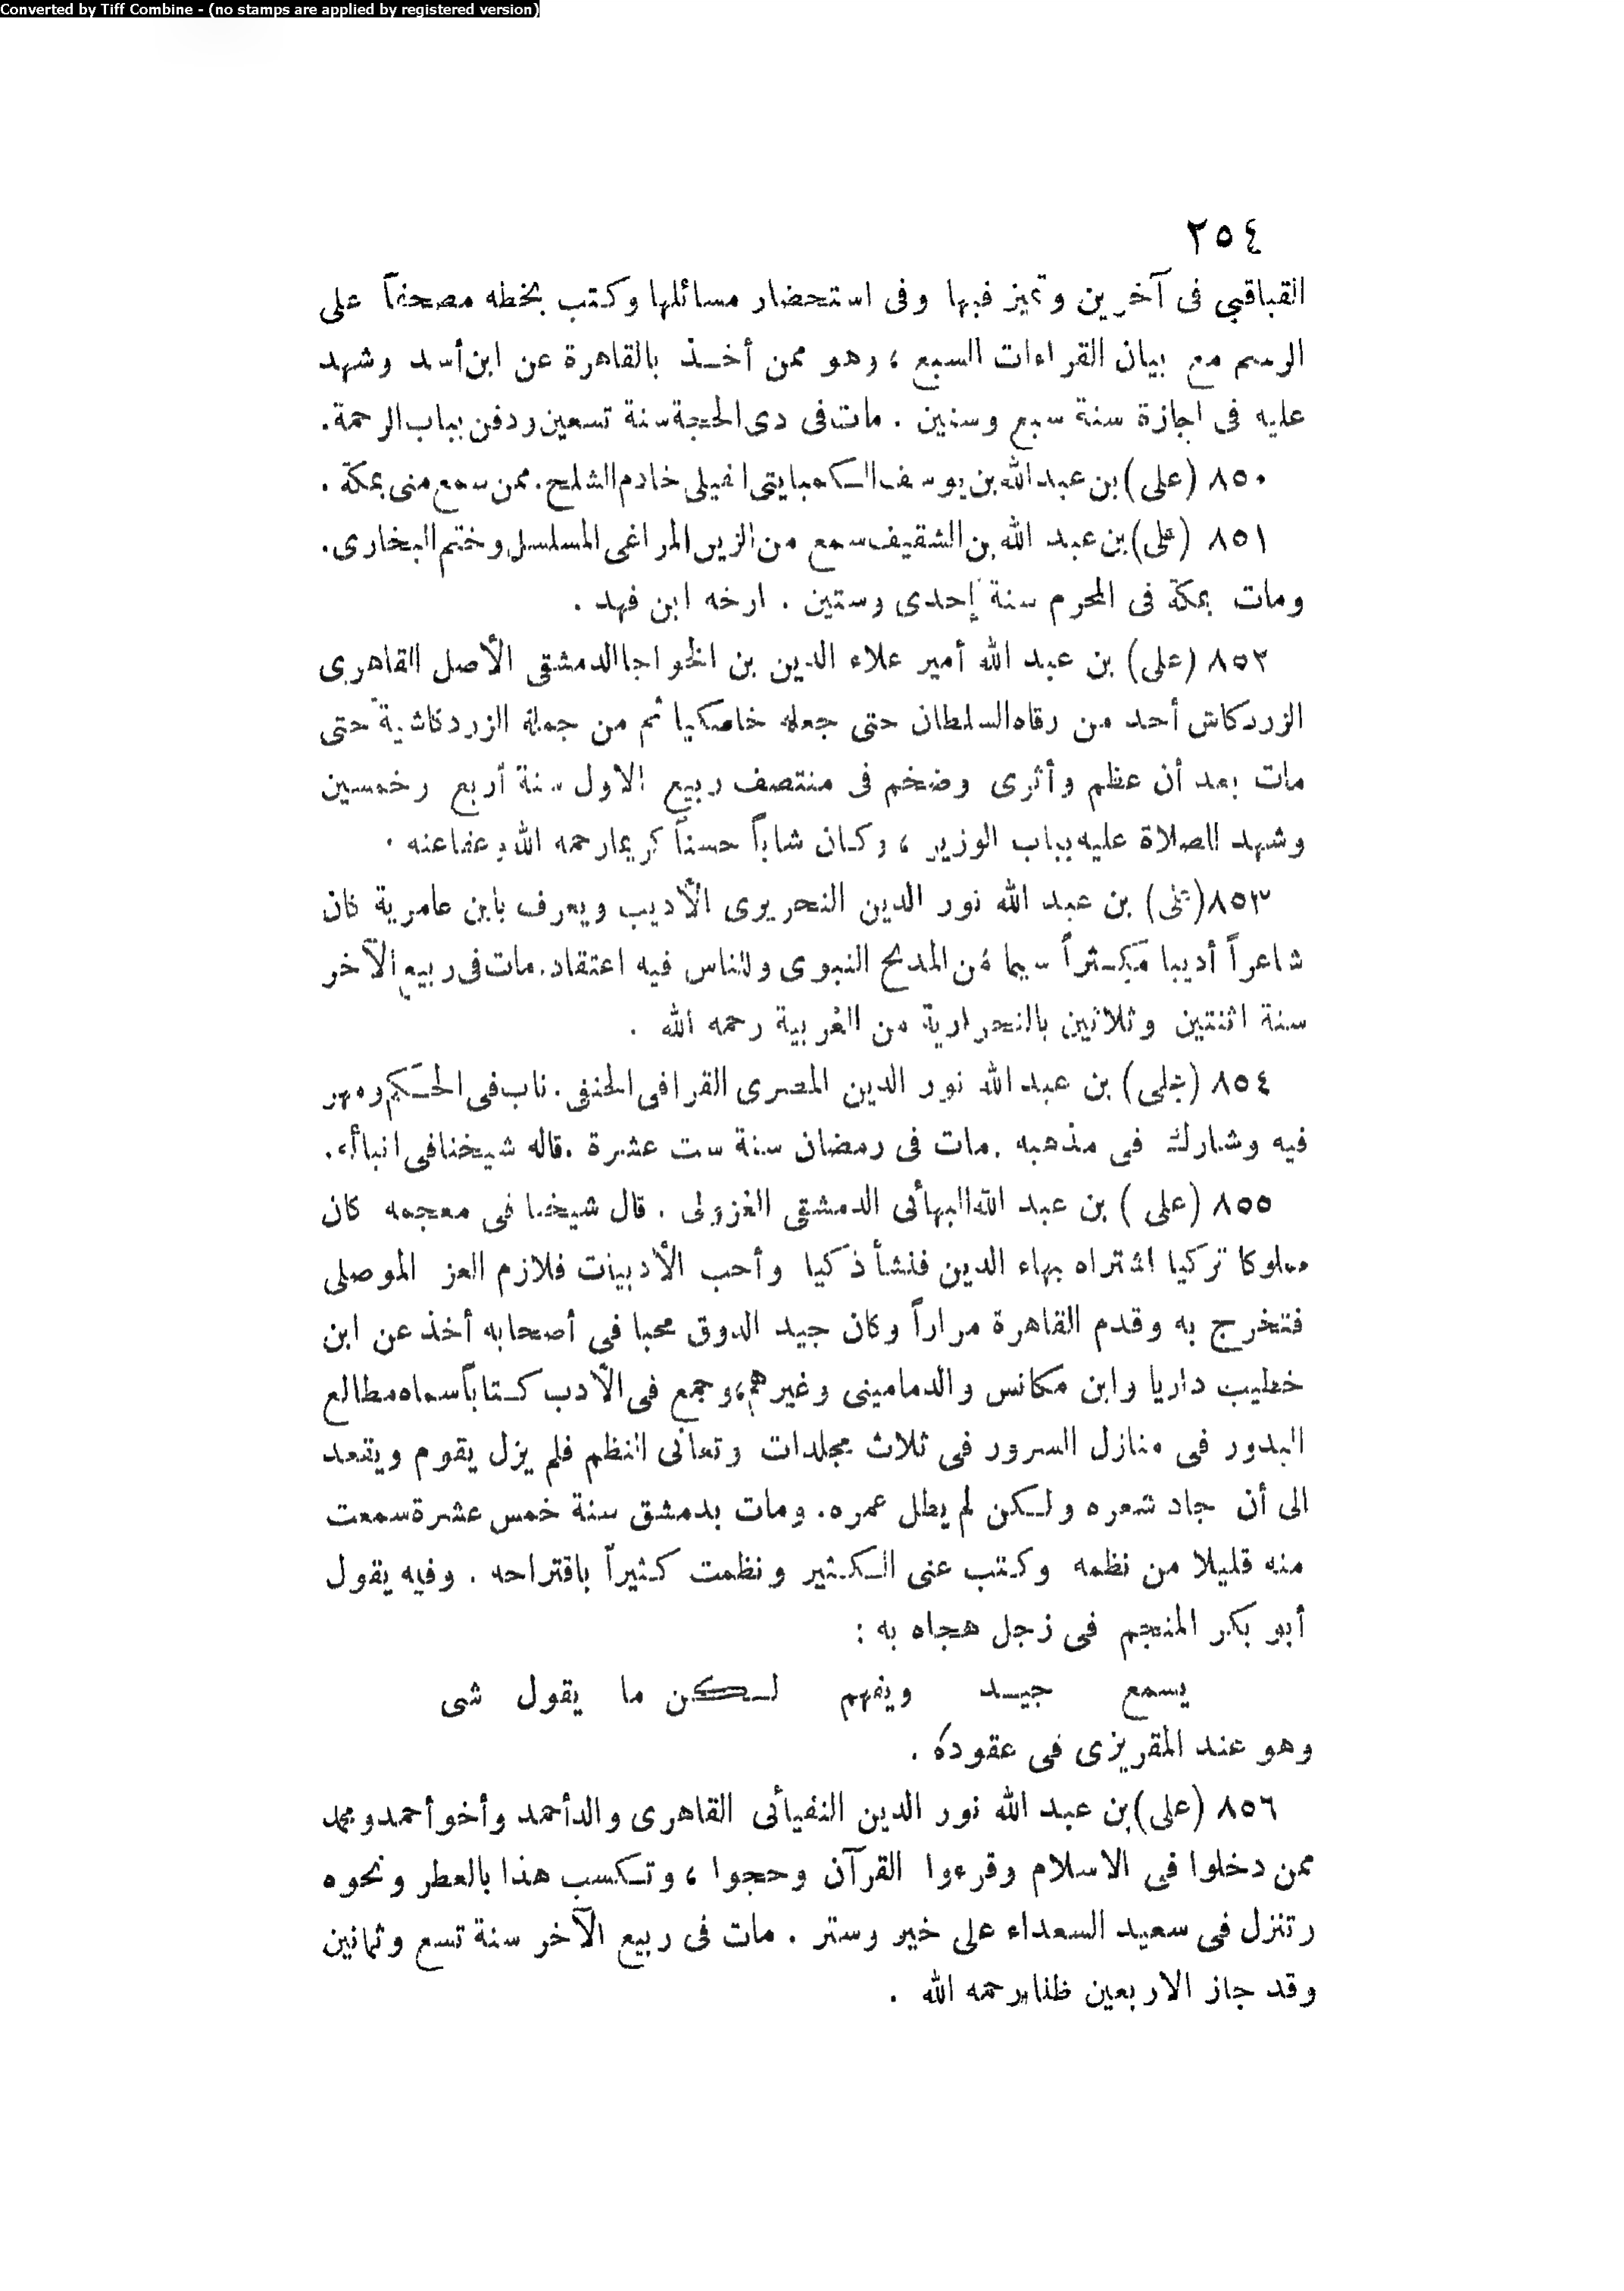 Converted by Tiff Combine - (no stamps are applied by registered version)
٢٥٤
القباقبي فى آخرين وتميز فيها وفى استحضار مسائلها وكتب بخطه مصحفاً على
الرسم مع بيان القراءات السبع ، وهو ممن أخذ بالقاهرة عن ابن أسد وشهد
عليه فى اجازة سنة سبع وستين . مات فى ذى الحجة سنة تسعين ودفن بباب الرحمة.
٨٥٠ (على) بن عبد الله بن يوسف الكمبايتى خادم الشلح. ممن سمع منى بمكة .
٨٥١ (على) بن عبد الله بن الشقيف سمع من الزين المراغى المسلسل وختم البخارى.
ومات بمكة فى المحرم سنة إحدى وستين . ارخه ابن فهد .
٨٥٢ (على) بن عبد الله أمير علاء الدين بن الخواجا الدمشقى الأصل القاهرى
الزردكاش أحد من رقاه السلطان حتى جعله خاصكيا ثم من جملة الزردكاشية حتى
مات بعد أن عظم وأثرى وضخم فى منتصف ربيع الاول سنة أربع وخمسين
وشهد الصلاة عليه بباب الوزير ، وكان شاباً حسناً كريما رحمه الله وعفا عنه .
٨٥٣ (على) بن عبد الله نور الدين النحريرى الأديب ويعرف بابن عامرية كان
شاعراً أديبا مكثراً سيما من المديح النبوى وللناس فيه اعتقاد. مات فى ربيع الآخر
سنة اثنتين وثلاثين بالنحرارية من الغربية رحمه الله .
٨٥٤ (على) بن عبد الله نور الدين المصرى القرافى الحنفى. ناب فى الحكم ومهر
فيه وشارك فى مذهبه . مات فى رمضان سنة ست عشرة . قاله شيخنا فى انبائه.
٨٥٥ (على ) بن عبد الله البهائى الدمشقى الغزولى . قال شيخنا فى معجمه كان
مملوكا تركيا اشتراه بهاء الدين فنشأ ذكيا وأحب الأدبيات فلازم العز الموصلى
فتخرج به وقدم القاهرة مراراً وكان جيد الذوق محبا فى أصحابه أخذ عن ابن
خطيب داريا وابن مكانس والدمامينى وغيرهم، وجمع فى الأدب كتاباً سماه مطالع
البدور فى منازل السرور فى ثلاث مجلدات وتعانى النظم فلم يزل يقوم ويقعد
الى أن جاد شعره ولكن لم يطل عمره. ومات بدمشق سنة خمس عشرة سمعت
منه قليلا من نظمه وكتب عنى الكثير ونظمت كثيراً باقتراحه . وفيه يقول
أبو بكر المنجم فى زجل هجاه به :
يسمع جيد ويفهم لكن ما يقول شى
وهو عند المقريزى فى عقوده .
٨٥٦ (على) بن عبد الله نور الدين النفيائى القاهرى والد أحمد وأخو أحمد ومحمد
ممن دخلوا فى الاسلام وقرءوا القرآن وحجوا ، وتكسب هذا بالعطر ونحوه
وتنزل فى سعيد السعداء على خير وستر . مات فى ربيع الآخر سنة تسع وثمانين
وقد جاز الاربعين ظنا رحمه الله .